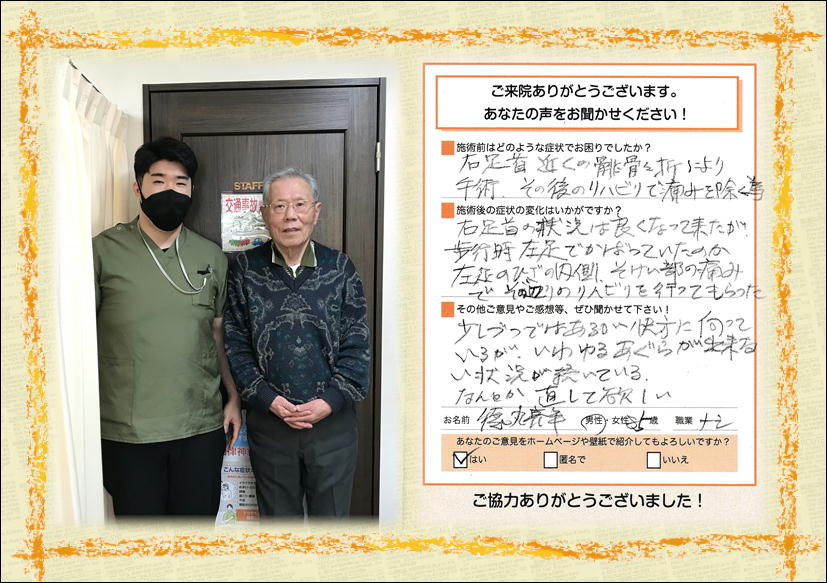 STAFF
交通事故
こんな症状
ご来院ありがとうございます。
あなたの声をお聞かせください！
施術前はどのような症状でお困りでしたか？
右足首近くの骨を折により
手術、その後のリハビリで痛みを除く為
施術後の症状の変化はいかがですか？
右足首の状況は良くなって来たが、
歩行時左足でかばっていたのか
左足のひざの内側、そけい部の痛み
で のリハビリを行ってもらった
その他ご意見やご感想等、ぜひ聞かせて下さい！
少しづつではあるがい快方に向って
いるが、いわゆるあぐらが出来な
い状況が続いている。
なんとか直して欲しい
お名前 男性・女性 歳 職業 ナシ
あなたのご意見をホームページや壁紙で紹介してもよろしいですか？
はい 匿名で いいえ
ご協力ありがとうございました！